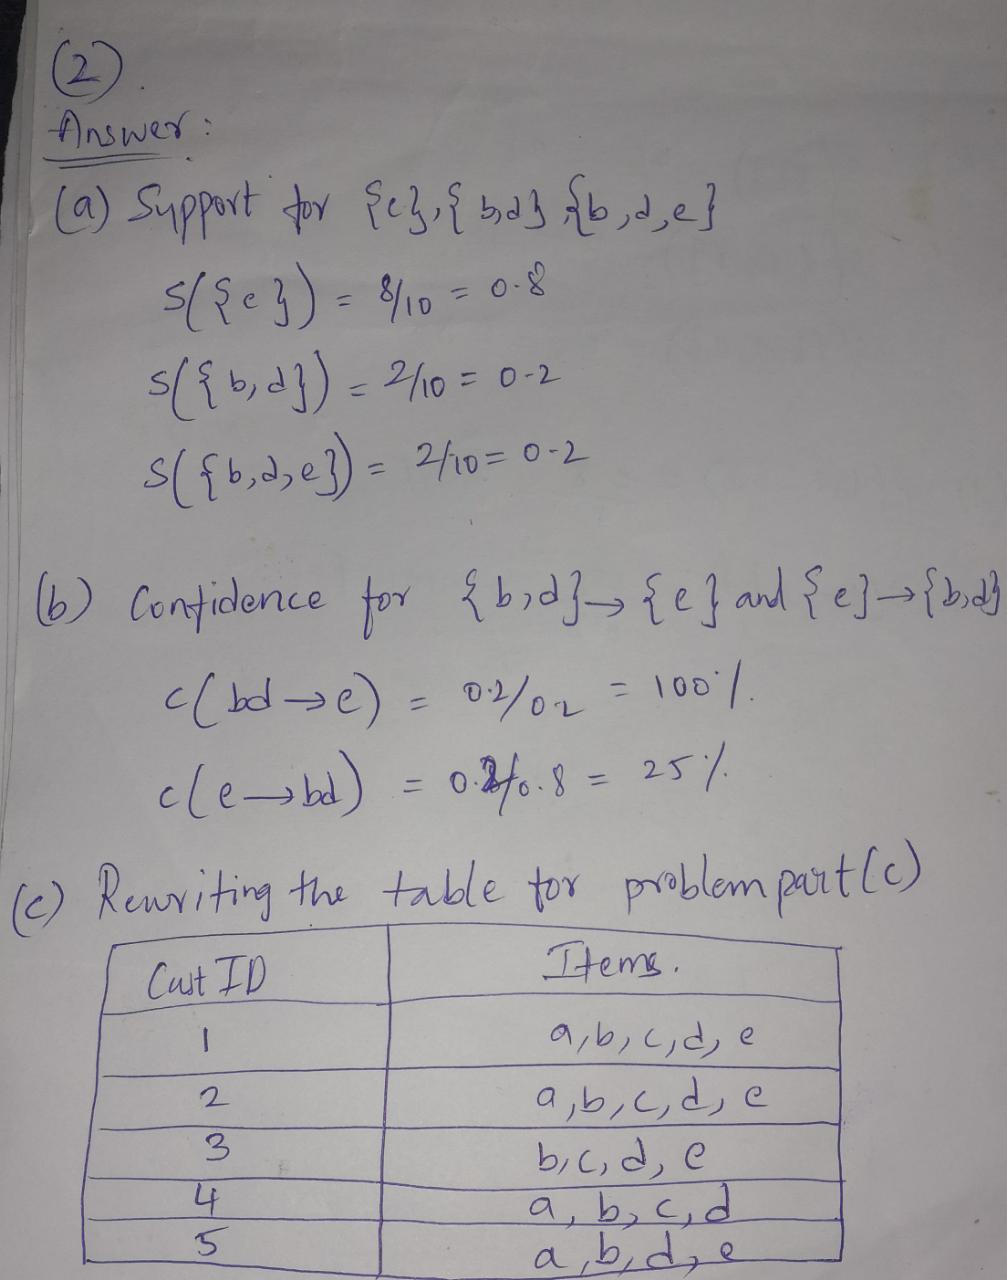 (2).
Answer:
(a) Support for {e}, {b,d} {b,d,e}
S({e}) = 8/10 = 0.8
S({b,d}) = 2/10 = 0.2
S({b,d,e}) = 2/10 = 0.2
(b) Confidence for {b,d} → {e} and {e} → {b,d}
c(bd → e) = 0.2/0.2 = 100%.
c(e → bd) = 0.2/0.8 = 25%.
(c) Rewriting the table for problem part (c)
Cust ID Items.
1 a, b, c, d, e
2 a, b, c, d, e
3 b, c, d, e
4 a, b, c, d
5 a, b, d, e